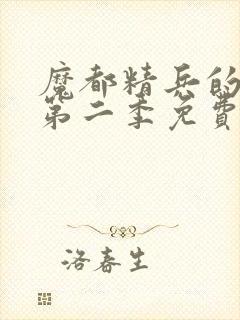 魔都精兵的
第二季免費
洛春生